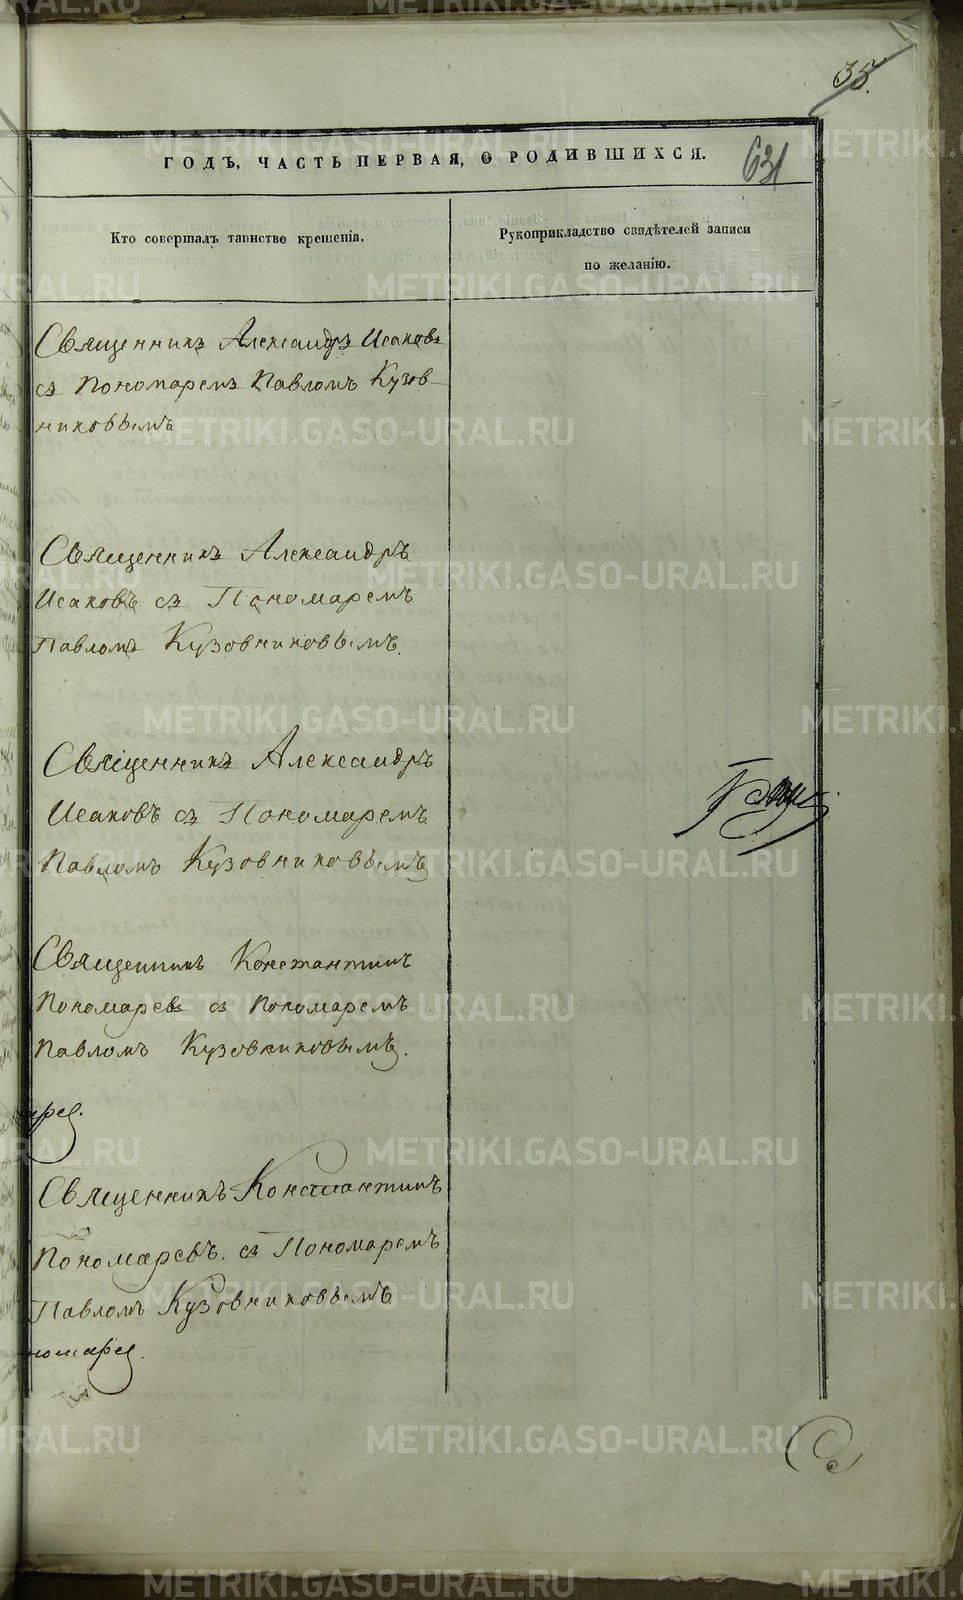 35.
ГОДЪ, ЧАСТЬ ПЕРВАЯ, О РОДИВШИХСЯ.
631
Кто совершалъ таинство крещенія.
Рукоприкладство свидѣтелей записи
по желанію.
Священникъ Александръ Исаковъ
съ Пономаремъ Павломъ Кузов-
никовымъ
Священникъ Александръ
Исаковъ съ Пономаремъ
Павломъ Кузовниковымъ.
Священникъ Александръ
Исаковъ съ Пономаремъ
Павломъ Кузовниковымъ
Священникъ Константинъ
Пономаревъ съ Пономаремъ
Павломъ Кузовниковымъ.
Священникъ Константинъ
Пономаревъ. съ Пономаремъ
Павломъ Кузовниковымъ
METRIKI.GASO-URAL.RU